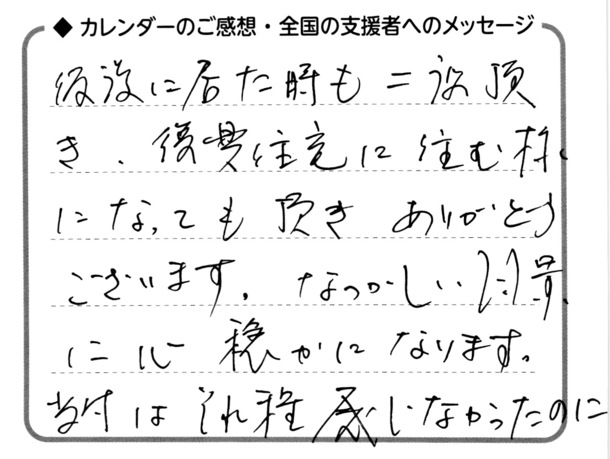 ◆ カレンダーのご感想・全国の支援者へのメッセージ
仮設に居た時も二次頂
き、復興住宅に住む様
になっても頂き ありがとう
ございます。なつかしい風景
に心穏かになります。
当時はそれ程感じなかったのに